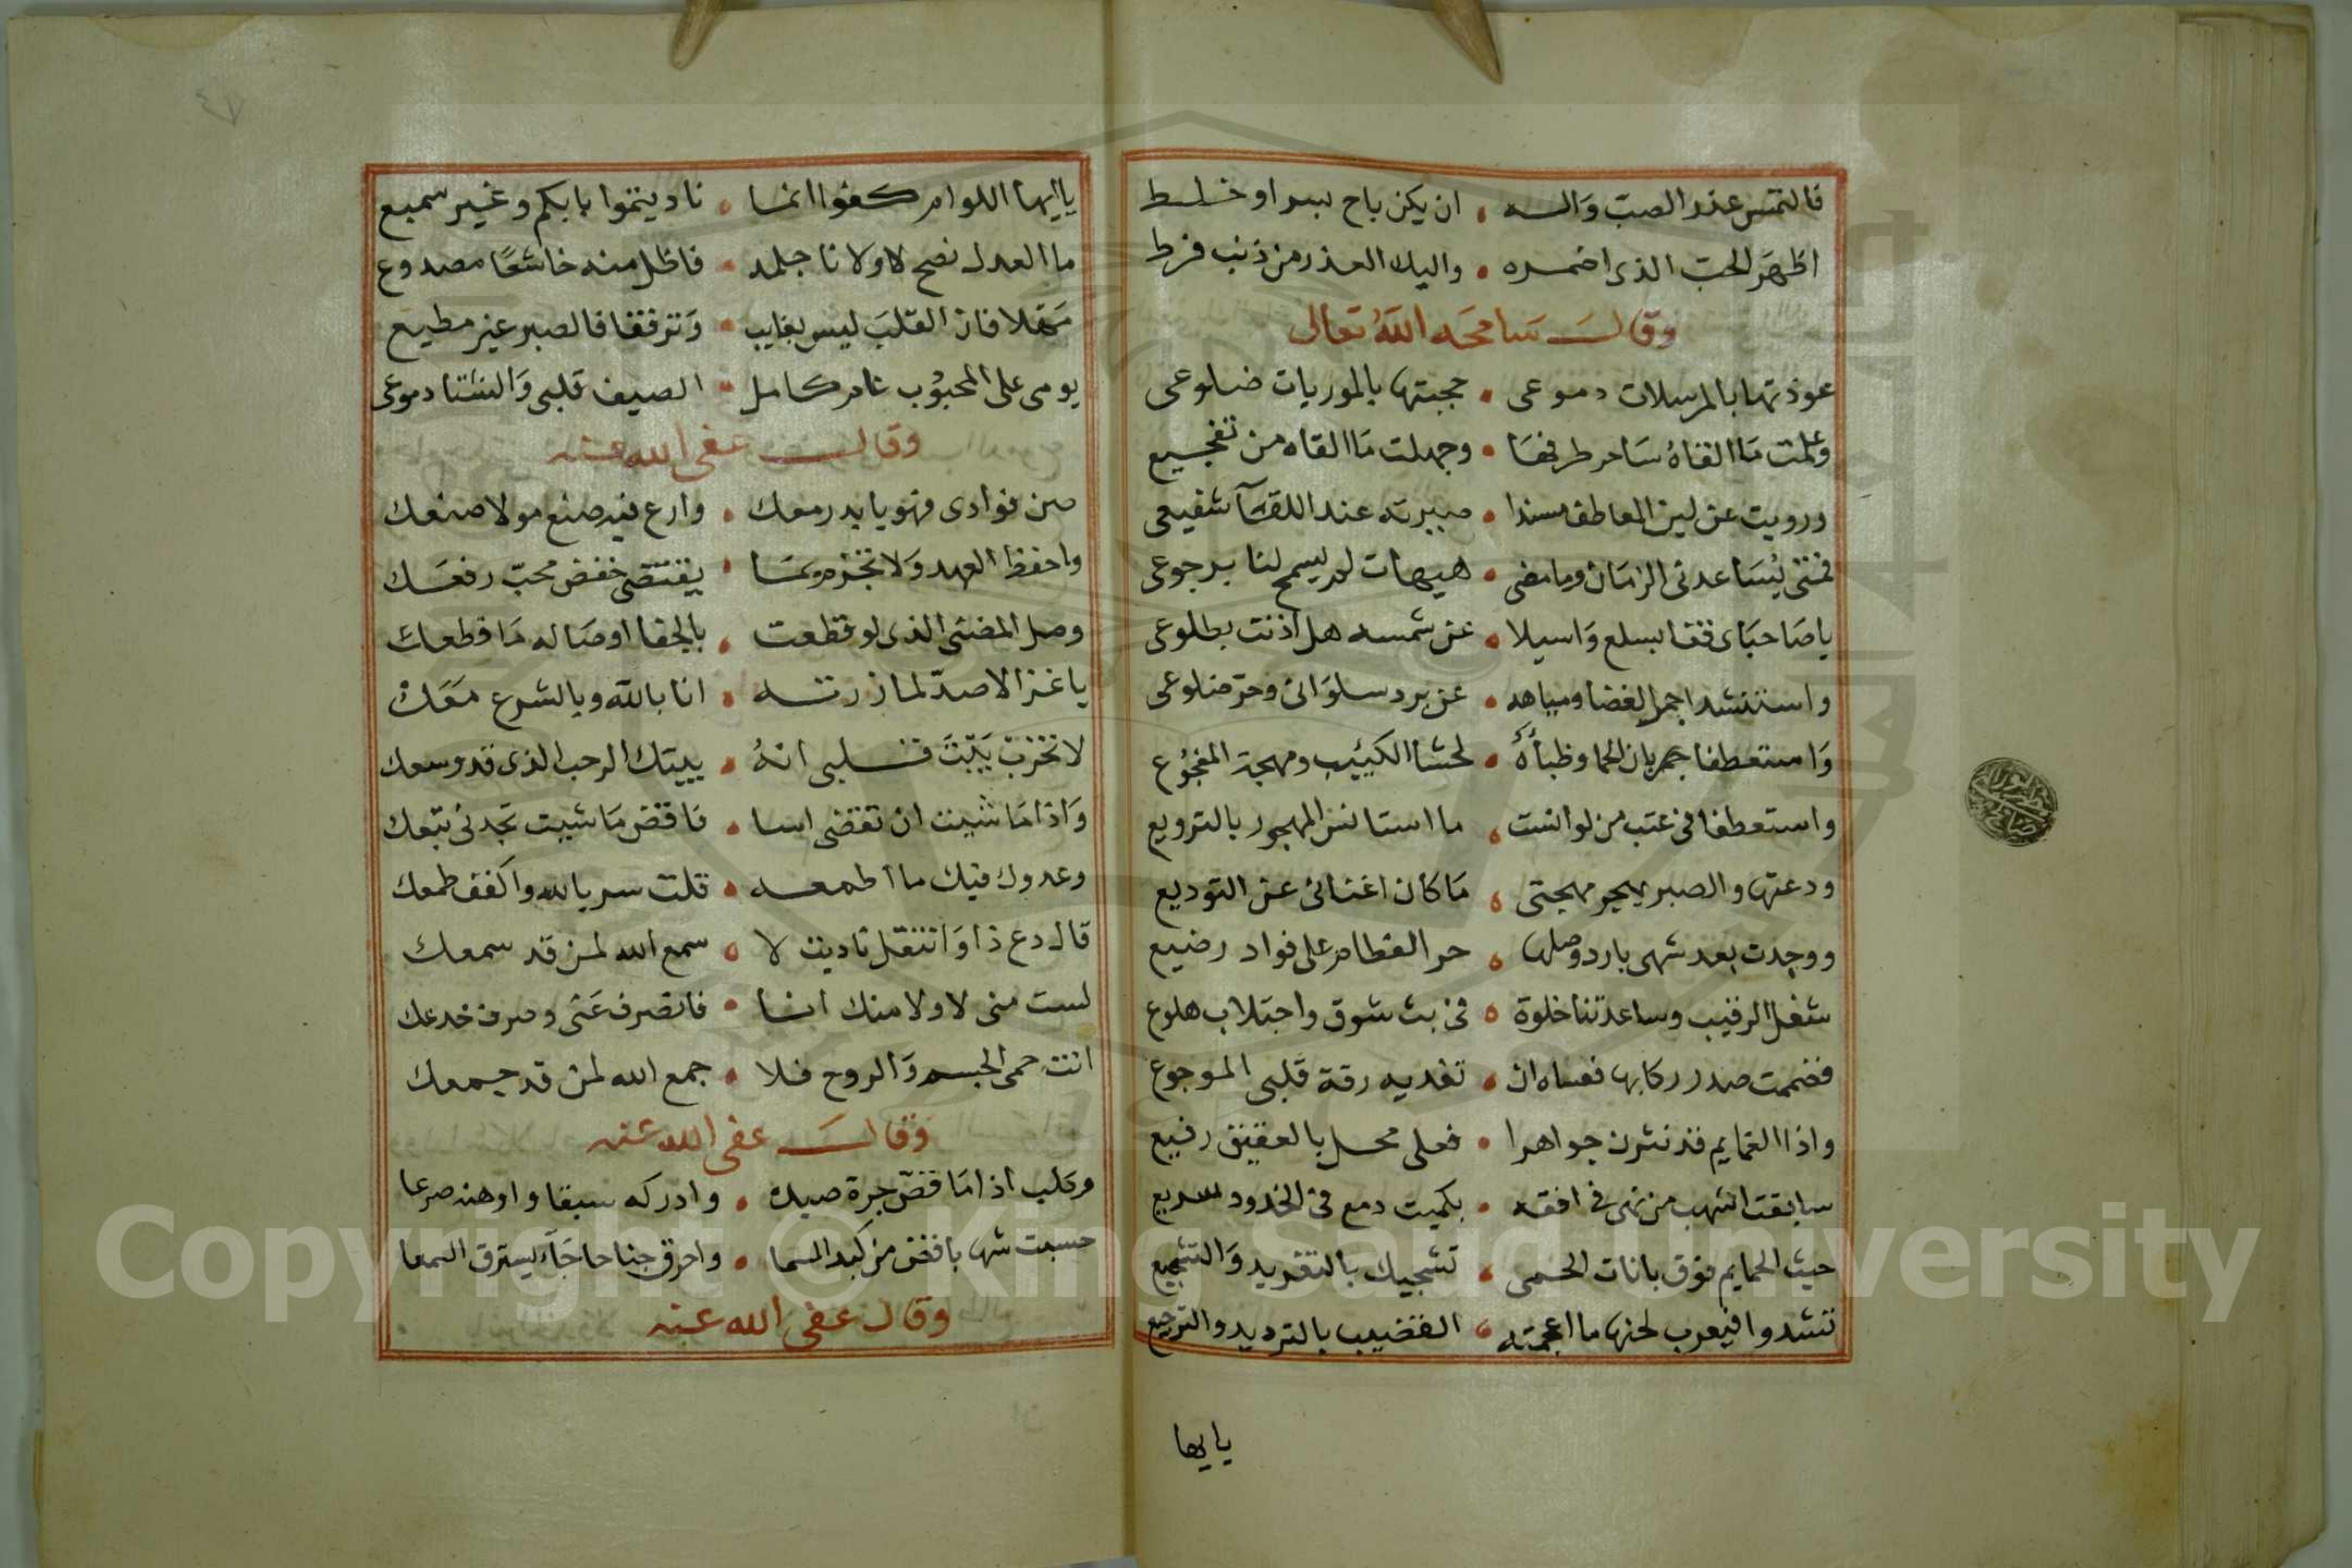 فالتمس عذر الصب واله • ان يكن باح بسر او خلط
اظهر الحب الذى اضمره • واليك العذر من ذنب فرط
وقال سامحه الله تعالى
عوذتها بالمرسلات دموعى • حجبتها بالموريات ضلوعى
وعلمت ما القاه ساحر طرفها • وجهلت ما القاه من تفجيع
ورويت عن لين المعاطف مسندا • صيرته عند اللقآ شفيعى
فمتى يساعدنى الزمان وما مضى • هيهات لم يسمح لنا برجوعى
يا صاحباى قفا بسلع واسيلا • عن شمسه هل اذنت بطلوعى
واستنشدا جمر الغضا ومياهه • عن برد سلوانى وحر ضلوعى
وامستعطفا جمر بان الحما وظباءه • لحشا الكييب ومهجة المفجوع
واستعطفا فى عتب من لو انست • ما استانس المهجور بالترويع
ودعتها والصبر يهجر مهجتى • ما كان اغنانى عن التوديع
ووجدت بعد شهى بارد وصلها • حر الفطام على فواد رضيع
شغل الرقيب وساعدتنا خلوة • فى بث شوق واجتلاب هلوع
فضممت صدر ركابها فعساه ان • تفديه رقة قلبى الموجوع
واذا الغمايم قد نثرن جواهرا • فعلى محل بالعقيق رفيع
سابقت الشهب من نهى فى افقه • بكميت دمع فى الخدود سريع
حيث الحمايم فوق بانات الحمى • تشجيك بالتغريد والتشجيع
تشدوا فيعرب لحنها ما اعجمته • القضيب بالترديد والترجيع
يايها
٤٧
يا ايها اللوام كفوا انما • ناديتموا بابكم وغير سميع
ما العدل نصح لا ولا نا جلمد • فاظل منه خاشعا مصدوع
مهلا فان القلب ليس بغايب • وترفقا فالصبر غير مطيع
يومى على المحبوب عام كامل • الصيف قلبى والشتا دموعى
وقال عفى الله عنه
صن فوادى فهو يا بدر معك • وارع فيه صنع مولا صنعك
واحفظ العهد ولا تخفر بما • يقتضى خفض محب رفعك
وصل المضنى الذى لو قطعت • بالجفا اوصاله ما قطعك
يا غزالا صد لما زرته • انا بالله وبالشرع معك
لا تخرب بيت قلبى انه • بيتك الرحب الذى قد وسعك
واذا ما شيت ان تقضى اسا • فاقض ما شيت تجدنى تبعك
وعدوك فيك ما اطمعه • قلت سر بالله واكفف طمعك
قال دع ذا وانتقل ناديت لا • سمع الله لمن قد سمعك
لست منى لا ولا منك انا • فانصرف عنى وصرف خدعك
انت حمى الجسم والروح فلا • جمع الله لمن قد جمعك
وقال عفى الله عنه
وكلب اذا ما قض جرة صيده • وادركه سبقا واوهنه صرعا
حسبت شهابا قض من كبد السما • واحرق جناحا جآء يسترق السمعا
وقال عفى الله عنه
Copyright © King Saud University